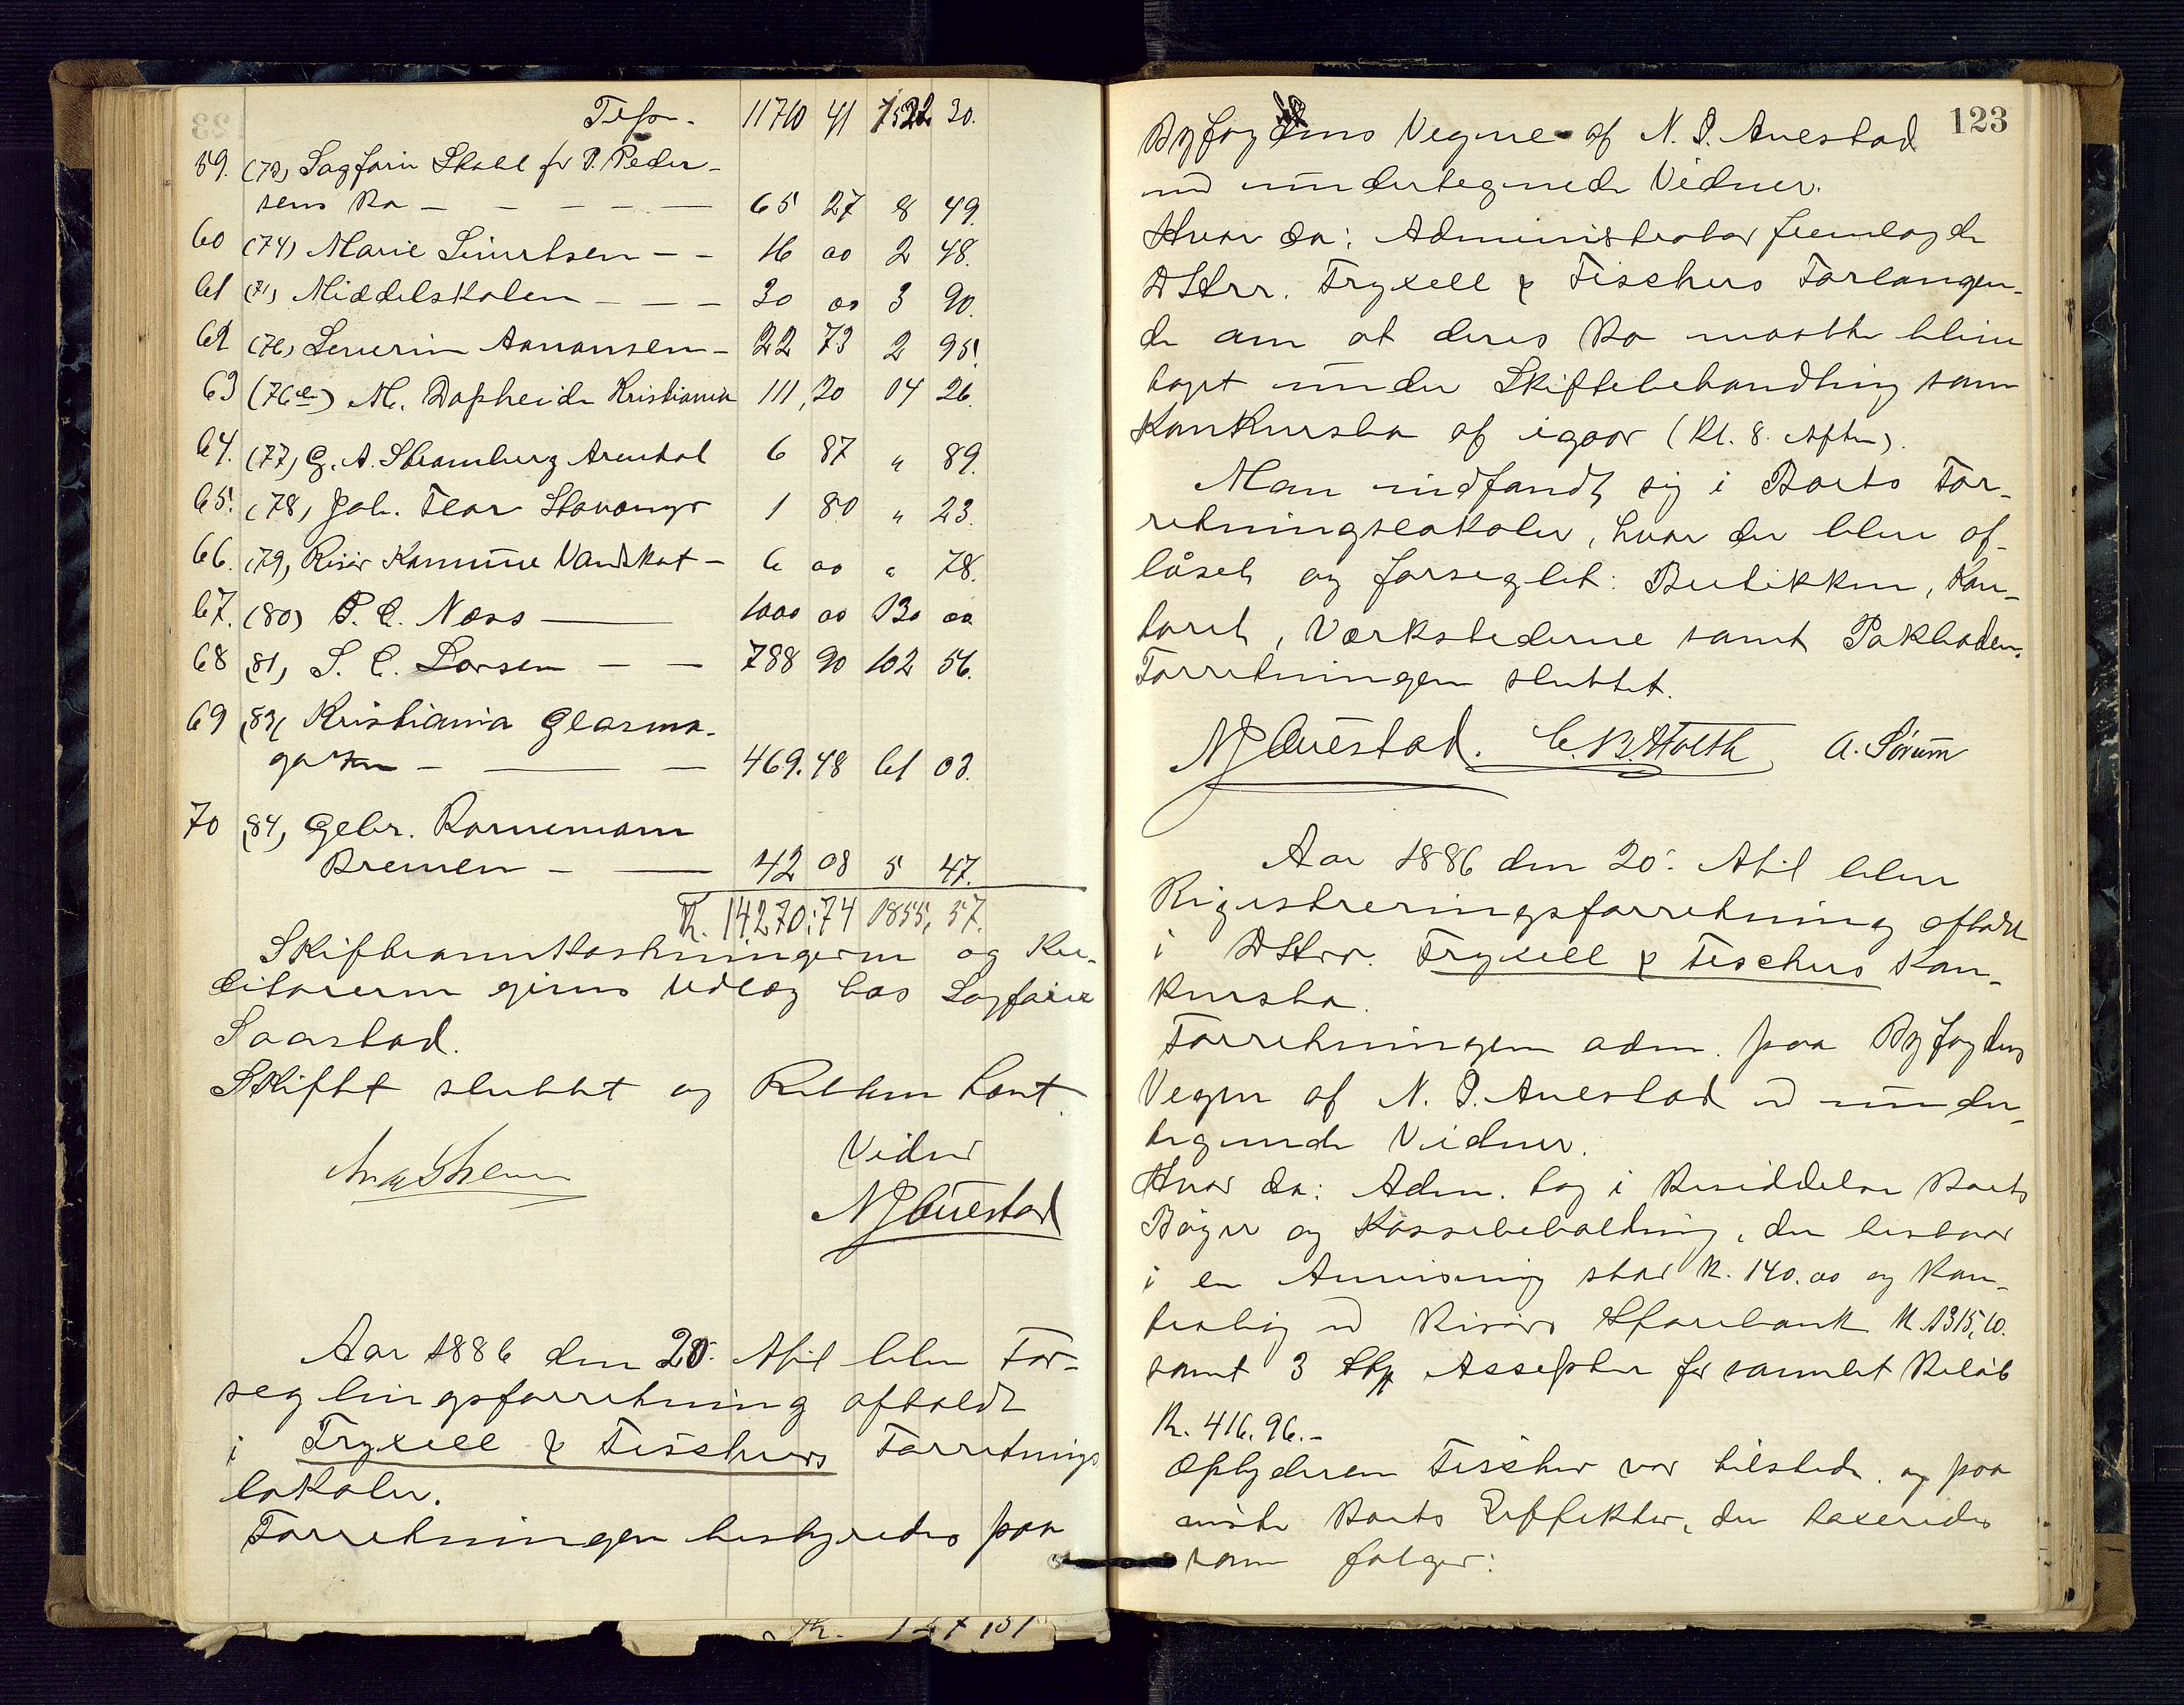 Trsp. 11710 41 1522 30.
59. (73) Sagfører Stabell for P. Peder-
sens Bo — 65 27 8 49.
60 (74) Marie Sivertsen — 16 00 2 48.
61 (71) Middelskolen — 30 00 3 90.
62 (76) Severin Aanonsen — 22 73 2 95.
63 (76 a) M. Dopheide Kristiania 111,20 14 26.
64. (77) G. A. Stramberg Arendal 6 87 " 89.
65. (78) Joh. Floor Stavanger 1 80 " 23.
66. (79) Risør Kommune Vandskat — 6 00 " 78.
67. (80) P. C. Næss — 1000 00 130 00
68 (81) S. C. Larsen — 788 90 102 56.
69 (83) Kristiania Glasma-
gasin — 469.48 61 03.
70 (84) Gebr. Bornemann
Bremen — 42 08 5 47.
Kr. 14270:74 1855,57.
Skifteomkostningerne og Kre-
ditorerne gives Udlæg hos Sagfører
Saastad.
Skiftet sluttet og Retten hævet.
Vidner
NJAuestad
Aar 1886 den 20. April blev For-
seglingsforretning afholdt
i Fryxell & Fischers Forretnings
lokaler.
Forretningen bestyredes paa
123
Byfogdens Vegne af N. J. Auestad
med undertegnede Vidner.
Hvor da: Administrator fremlagde
DHrr. Fryxell & Fischers Forlangen-
de om at deres Bo maatte blive
taget under Skiftebehandling som
Konkursbo af igaar (Kl. 8. Aften).
Man indfandt sig i Boets For-
retningslokaler, hvor der blev af-
låset og forseglet: Butikken, Kon-
toret, Værkstederne samt Pakboden.
Forretningen sluttet.
NJAuestad. C. B. Holth A. Sørum
Aar 1886 den 20. April blev
Registreringsforretning afholdt
i DHrr. Fryxell & Fischers Kon-
kursbo.
Forretningen adm. paa Byfogdens
Vegne af N. J. Auestad med under-
tegnede Vidner.
Hvor da: Adm. tog i Besiddelse Boets
Bøger og Kassebeholdning, der bestaar
i en Anvisning stor Kr. 140.00 og Kon-
trabog med Risørs Sparebank Kr. 1315,10.
samt 3 Stk Assepter for samlet Beløb
Kr. 416.96.-
Opbyderen Fischer var tilstede og paa
viste Boets Effekter, der taxeredes
som følger: